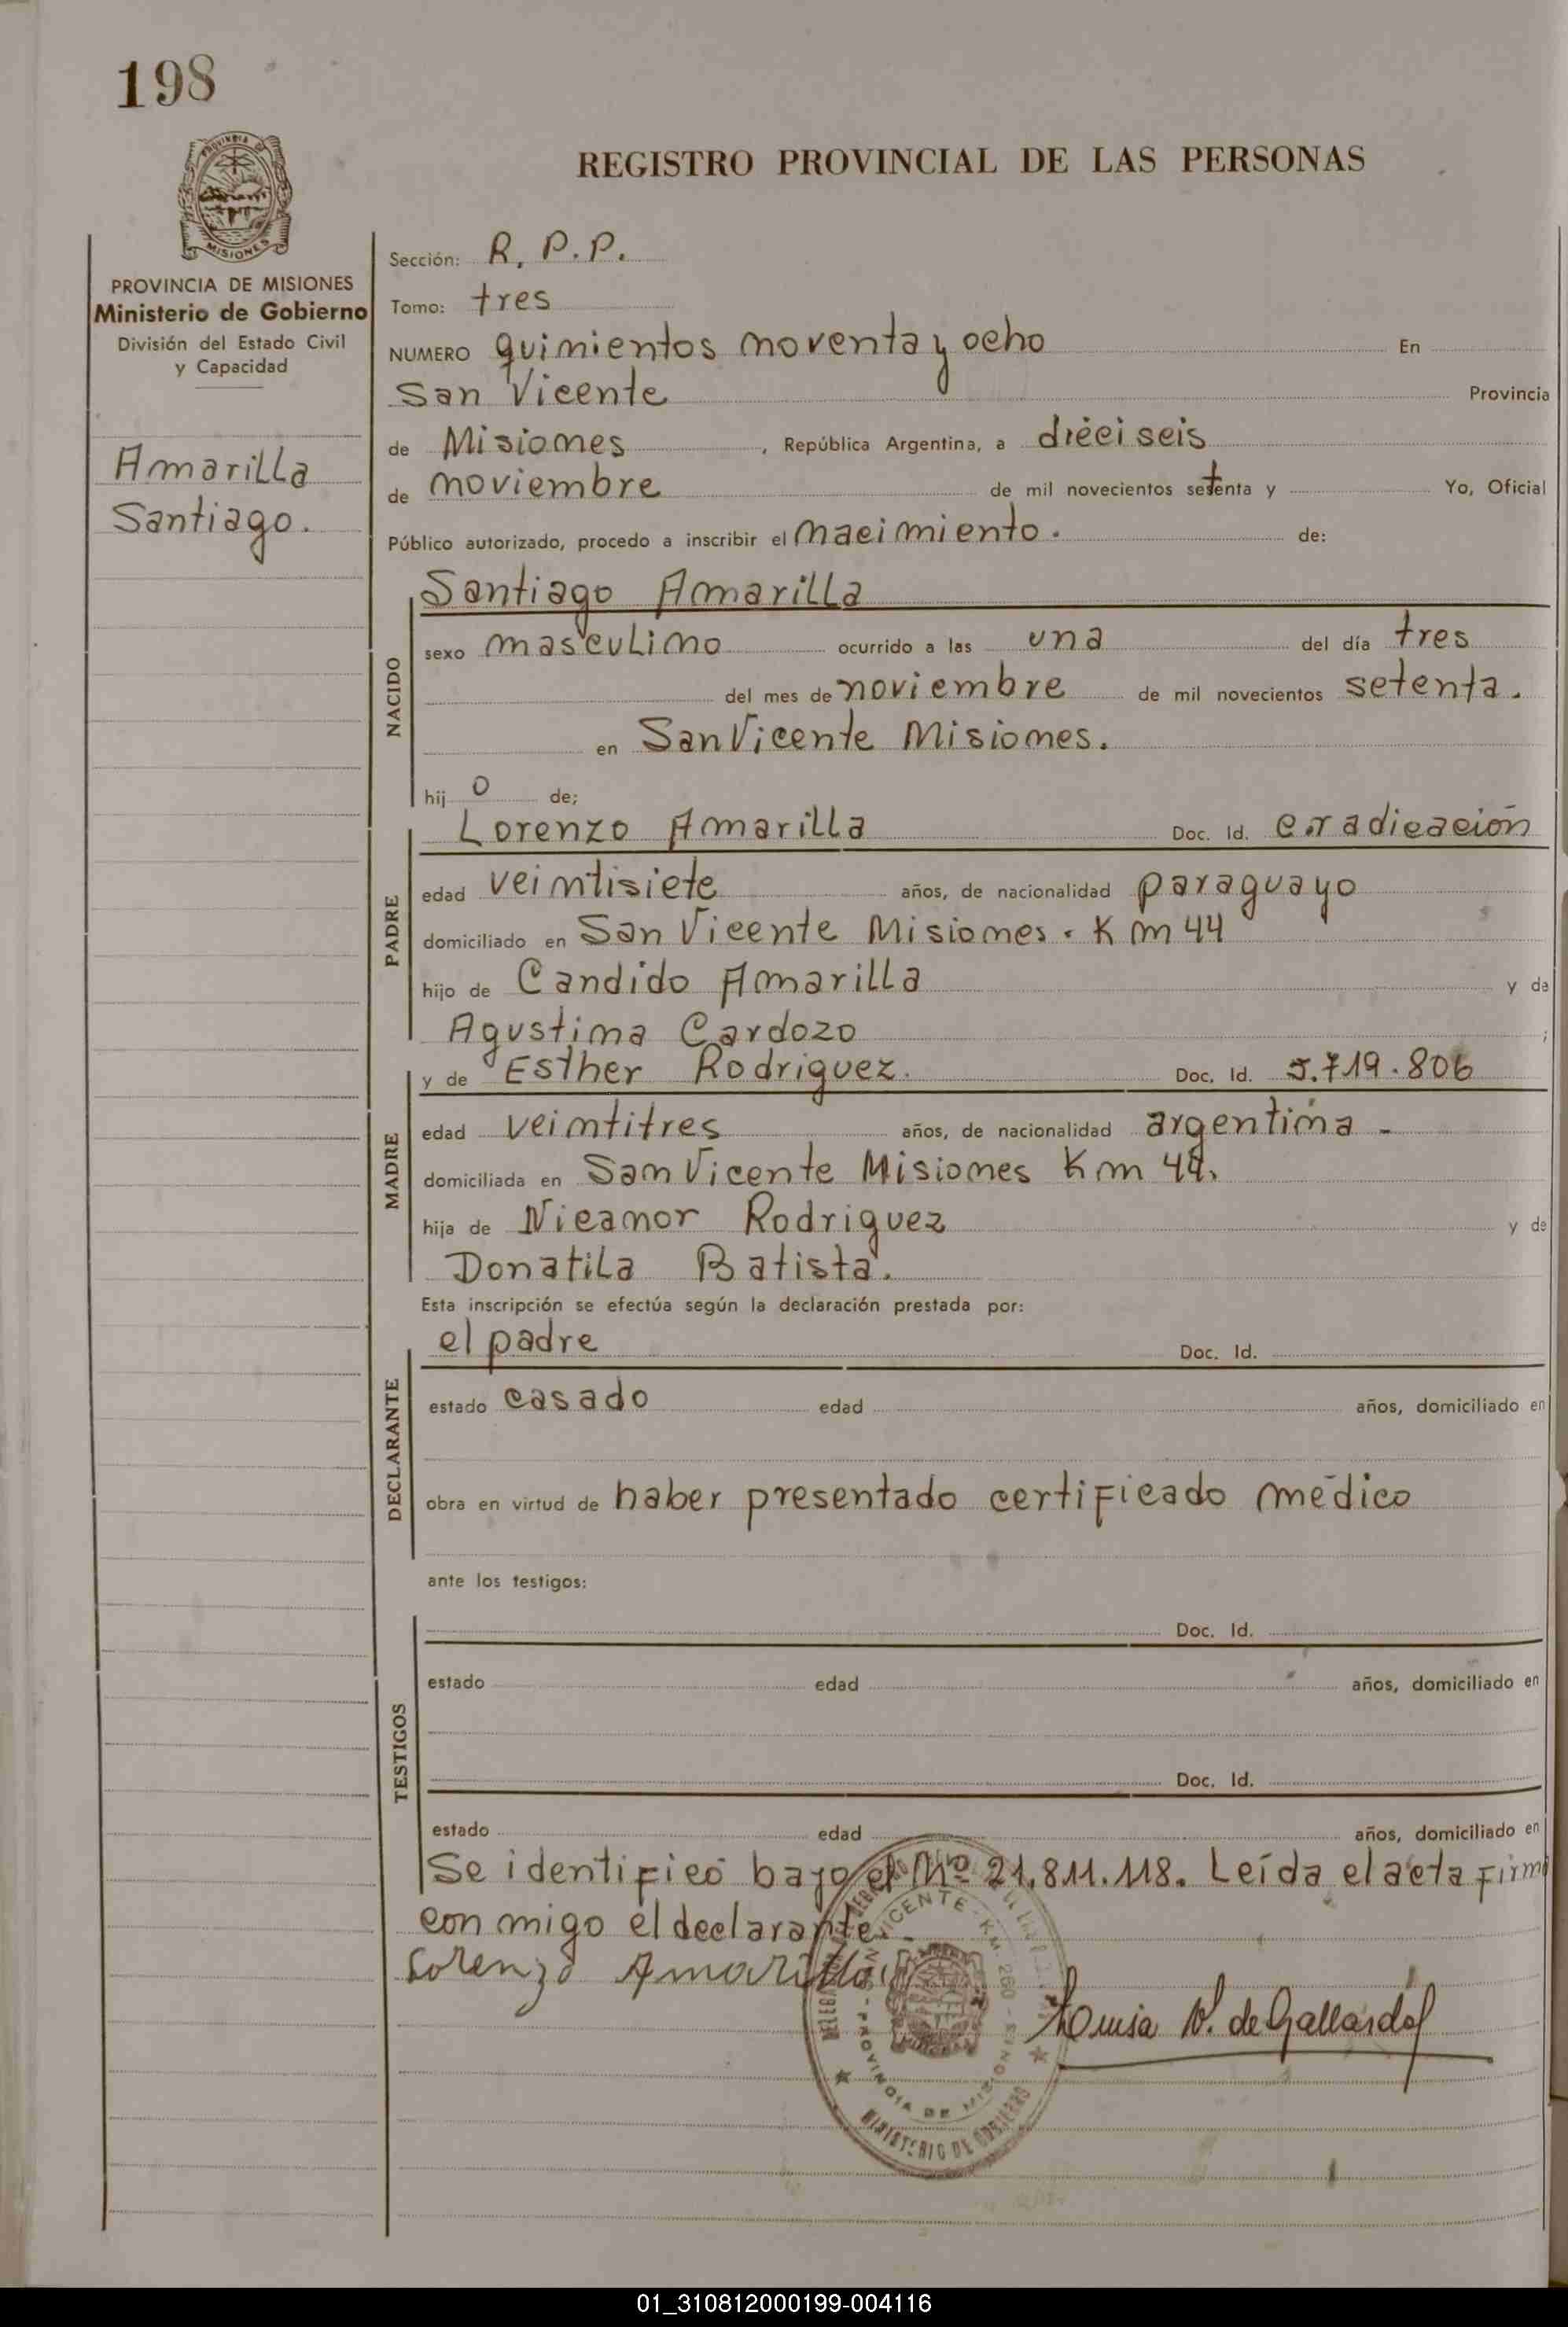 198
PROVINCIA DE
MISIONES
PROVINCIA DE MISIONES
Ministerio de Gobierno
División del Estado Civil
y Capacidad
Amarilla
Santiago.
REGISTRO PROVINCIAL DE LAS PERSONAS
Sección: R. P. P.
Tomo: tres
NUMERO quinientos noventa y ocho En
San Vicente Provincia
de Misiones, República Argentina, a diéciseis
de noviembre de mil novecientos setenta y Yo, Oficial
Público autorizado, procedo a inscribir el nacimiento. de:
NACIDO
Santiago Amarilla
sexo masculino ocurrido a las una del día tres
del mes de noviembre de mil novecientos setenta.
en San Vicente Misiones.
hij o de;
PADRE
Lorenzo Amarilla Doc. Id. c.radicación
edad veintisiete años, de nacionalidad paraguayo
domiciliado en San Vicente Misiones. Km 44
hijo de Candido Amarilla y de
Agustina Cardozo ;
MADRE
y de Esther Rodriguez. Doc. Id. 5.719.806
edad veintitres años, de nacionalidad argentina -
domiciliada en San Vicente Misiones Km 44.
hija de Nicanor Rodriguez y de
Donatila Batista.
Esta inscripción se efectúa según la declaración prestada por:
DECLARANTE
el padre Doc. Id.
estado casado edad años, domiciliado en
obra en virtud de haber presentado certificado médico
ante los testigos:
TESTIGOS
Doc. Id.
estado edad años, domiciliado en
Doc. Id.
estado edad años, domiciliado en
Se identificó bajo el Nº 21.811.118. Leída el acta firma
con migo el declarante.
Lorenzo Amarilla
Luisa V. de Gallardo
VICENTE - KM. 260 - PROVINCIA DE MISIONES
MINISTERIO DE GOBIERNO
01_310812000199-004116